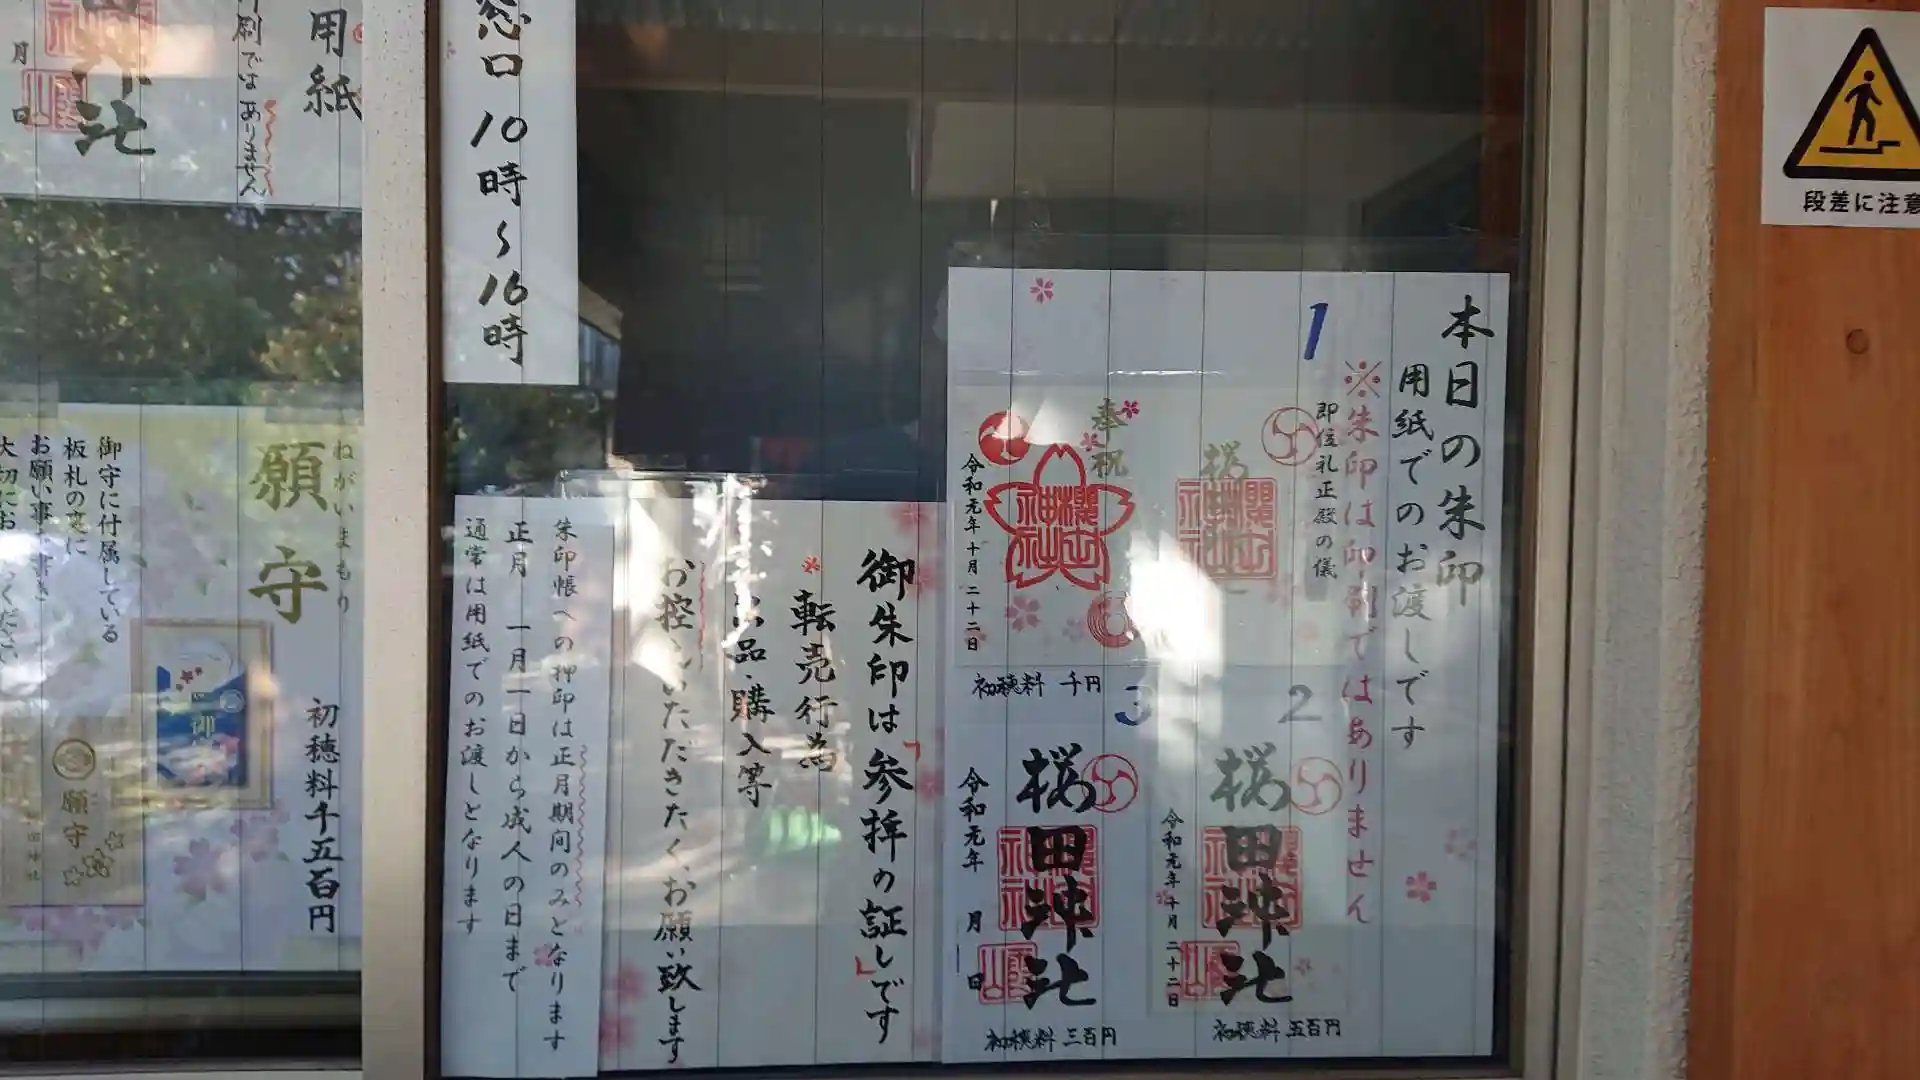 本日の朱印
用紙でのお渡しです
※朱印は印刷ではありません
1
即位礼正殿の儀
奉祝
櫻田神社
令和元年十月二十二日
初穂料 千円
2
桜田神社
令和元年十月二十二日
初穂料 五百円
3
桜田神社
令和元年 月 日
初穂料 三百円
御朱印は「参拝の証し」です
転売行為
出品・購入等
お控えいただきたく、お願い致します
朱印帳への押印は正月期間のみとなります
正月 一月一日から成人の日まで
通常は用紙でのお渡しとなります
窓口 10時〜16時
用紙
刷ではありません
神社
月 日
ねがいまもり
願守
初穂料千五百円
御守に付属している
板札の裏に
お願い事を書き
大切にお
願守
段差に注意